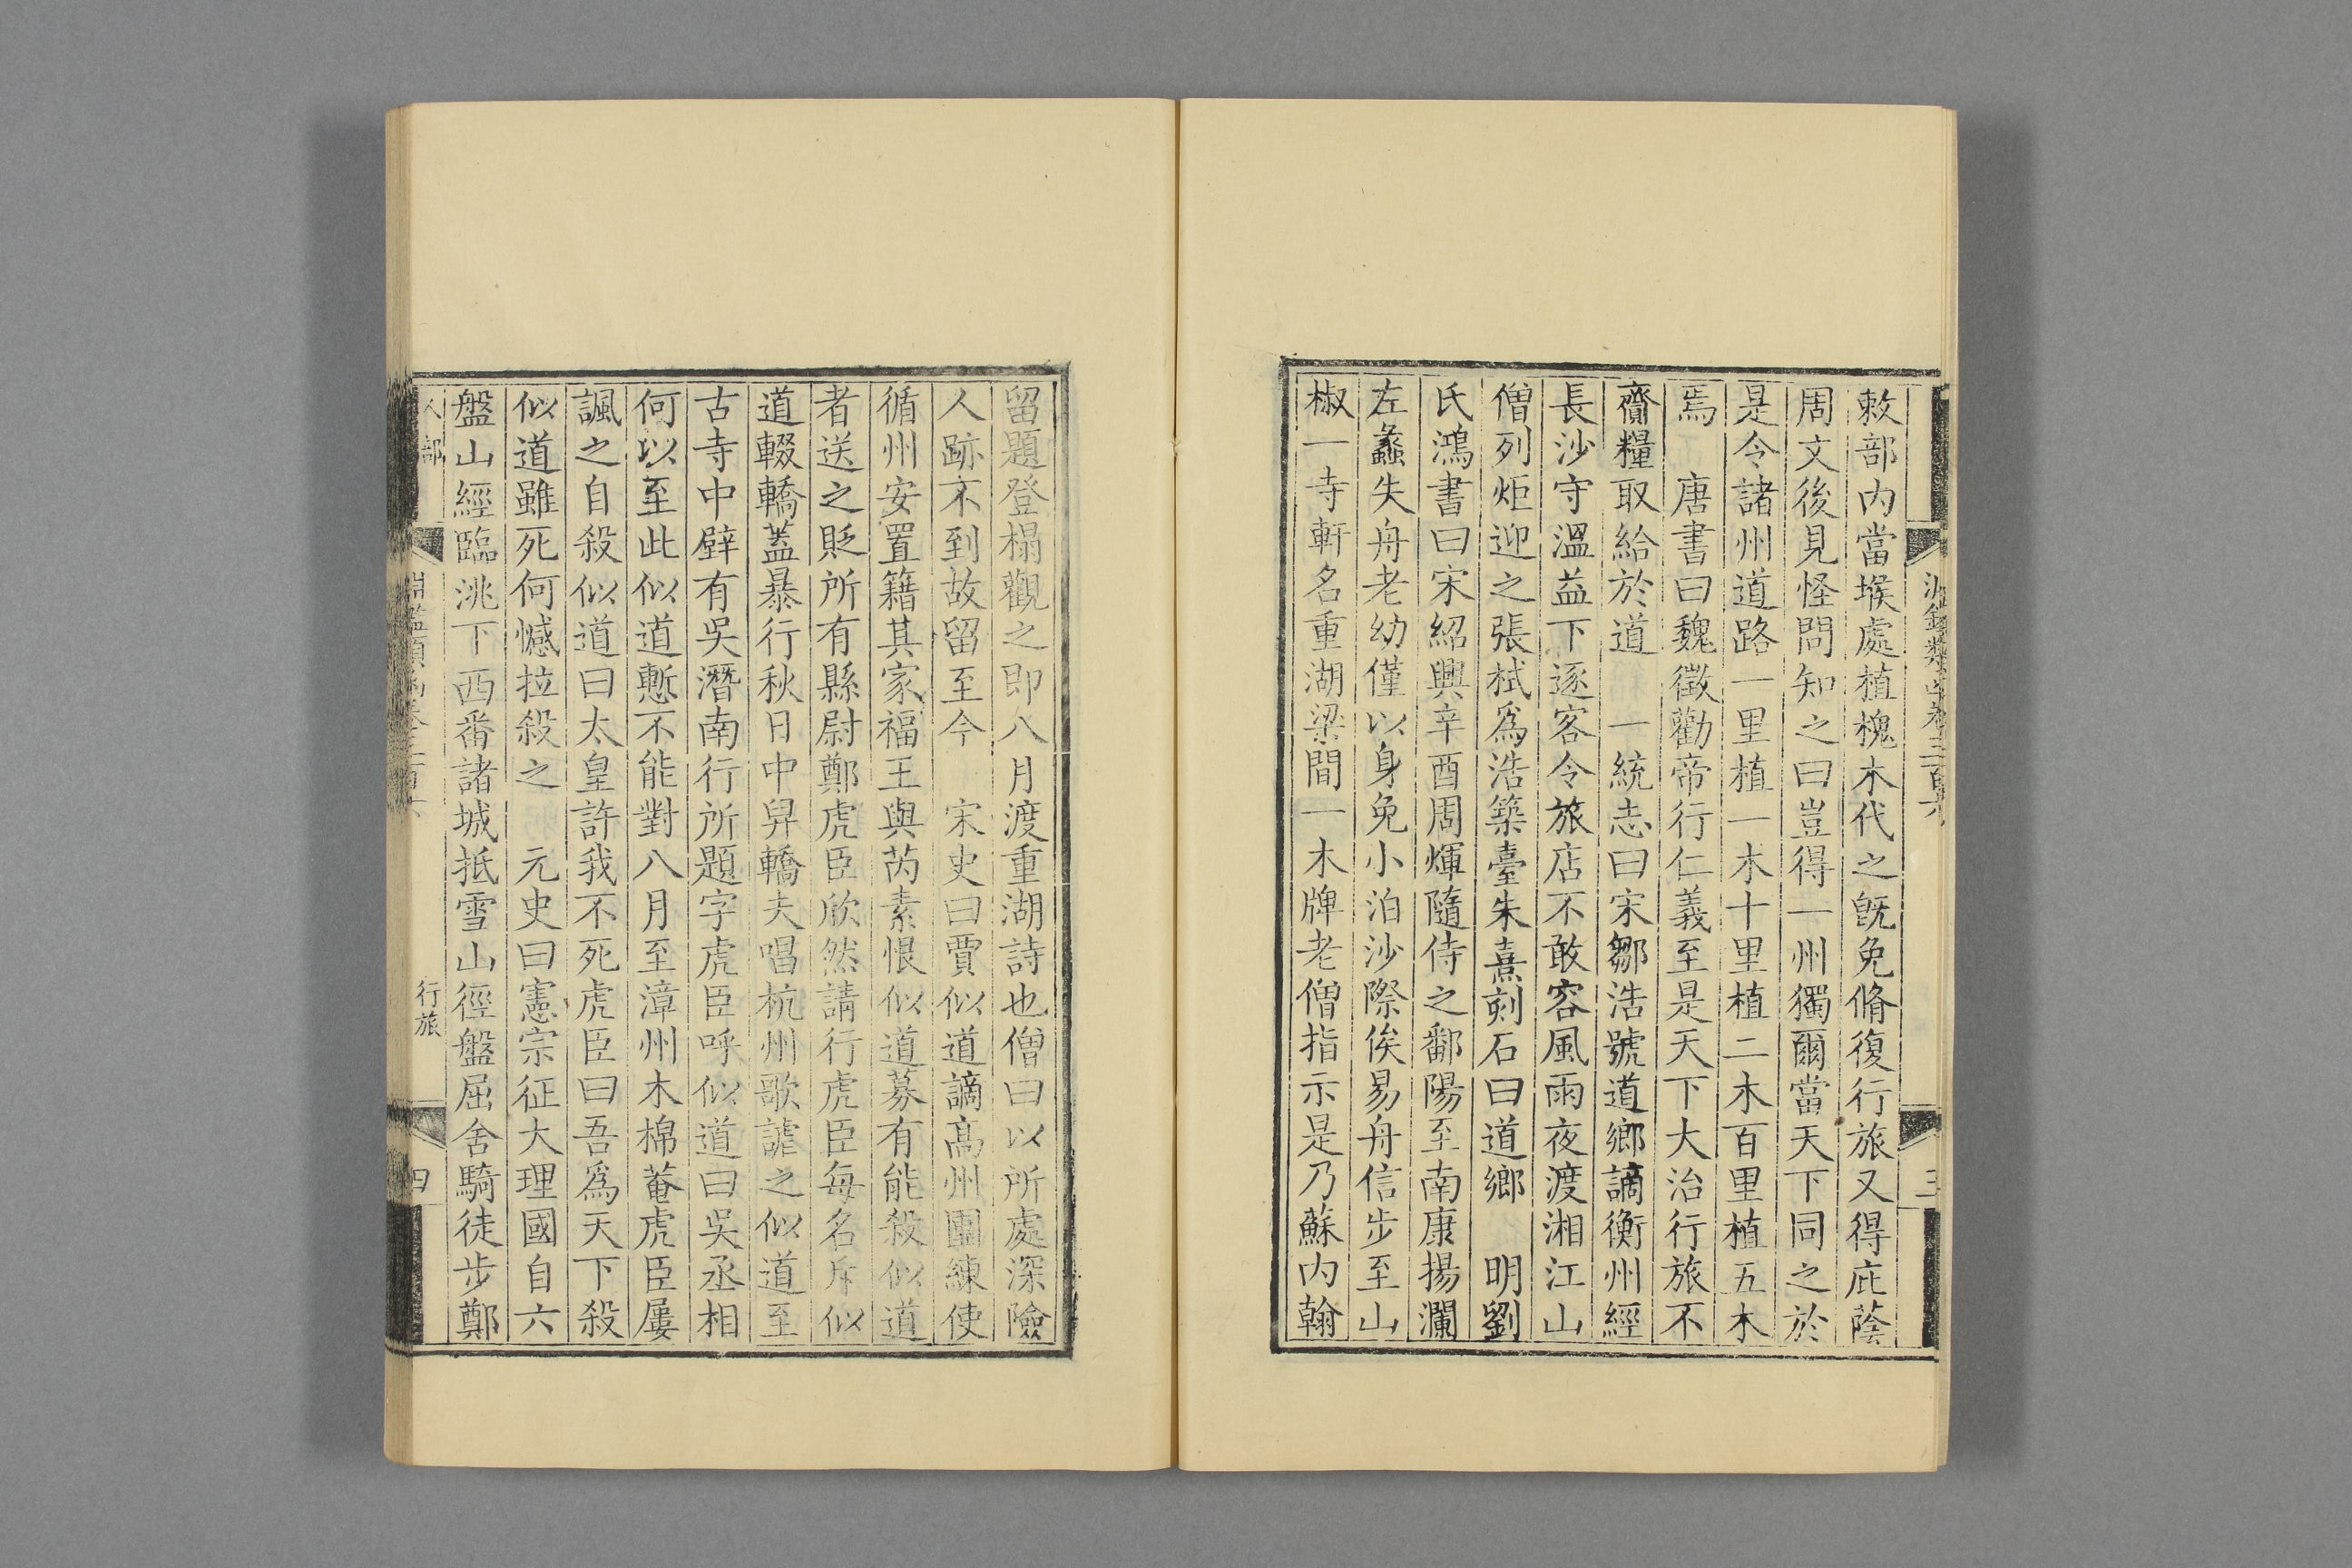 敕部內當堠處植槐木代之旣免脩復行旅又得庇蔭
周文後見怪問知之曰豈得一州獨爾當天下同之於
是令諸州道路一里植一木十里植二木百里植五木
焉　唐書曰魏徵勸帝行仁義至是天下大治行旅不
齎糧取給於道　一統志曰宋鄒浩號道鄉謫衡州經
長沙守溫益下逐客令旅店不敢容風雨夜渡湘江山
僧列炬迎之張栻爲浩築臺朱熹刻石曰道鄉　明劉
氏鴻書曰宋紹興辛酉周煇隨侍之鄱陽至南康揚瀾
左蠡失舟老幼僅以身免小泊沙際俟易舟信步至山
椒一寺軒名重湖梁間一木牌老僧指示是乃蘇內翰
三
留題登榻觀之即八月渡重湖詩也僧曰以所處深險
人跡不到故留至今　宋史曰賈似道謫高州團練使
循州安置籍其家福王與芮素恨似道募有能殺似道
者送之貶所有縣尉鄭虎臣欣然請行虎臣每名斥似
道輟轎蓋暴行秋日中舁轎夫唱杭州歌謔之似道至
古寺中壁有吳潛南行所題字虎臣呼似道曰吳丞相
何以至此似道慙不能對八月至漳州木棉菴虎臣屢
諷之自殺似道曰太皇許我不死虎臣曰吾爲天下殺
似道雖死何憾拉殺之　元史曰憲宗征大理國自六
盤山經臨洮下西番諸城抵雪山徑盤屈舍騎徒步鄭
人部
行旅
四